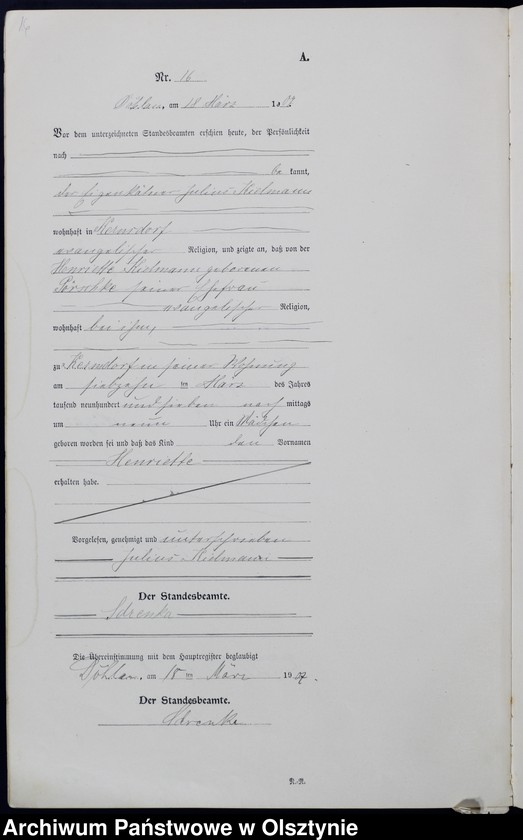 A.
Nr. 16
Döhlau, am 18 März 1907
Vor dem unterzeichneten Standesbeamten erschien heute, der Persönlichkeit
nach
be kannt,
der Eigenkätner Julius Kielmann
wohnhaft in Kernsdorf
evangelische Religion, und zeigte an, daß von der
Henriette Kielmann geborenen
seiner Ehefrau
evangelische Religion,
wohnhaft bei ihm,
zu Kernsdorf in seiner Wohnung
am siebzehn ten März des Jahres
tausend neunhundert und sieben nach mittags
um neun Uhr ein Mädchen
geboren worden sei und daß das Kind den Vornamen
Henriette
erhalten habe.
Vorgelesen, genehmigt und unterschrieben
Julius Kielmann
Der Standesbeamte.
Die Übereinstimmung mit dem Hauptregister beglaubigt
Döhlau, am 18 ten März 1907.
Der Standesbeamte.
Archiwum Państwowe w Olsztynie